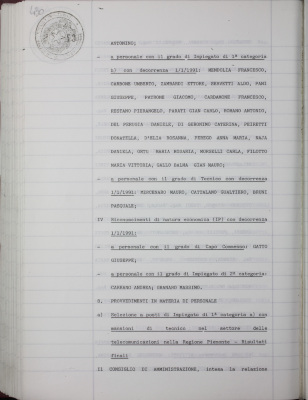 ANTONINO;
- a personale con il grado di Impiegato di 1^ categoria
b) con decorrenza 1/1/1991: FRANCESCO,
CARBONE UMBERTO, ZAMBARDI ETTORE, ALDO,
GIUSEPPE, PATRONE GIACOMO, FRANCESCO,
PIERANGELO, PARATI GIAN CARLO, ROMANO ANTONIO,
DEL DANIELE, DI GERONIMO CATERINA,
DONATELLA, D'ELIA ROSANNA, ANNA MARIA,
DANIELA, ORTO MARIA ROSARIA, MORDELLI CARLA, PILOTTO
MARIA VITTORIA, GALLO BALMA GIAN MAURO;
- a personale con il grado di Tecnico con decorrenza
1/1/1991: MAURO, CATTALANO GUALTIERO, BRUNI
PASQUALE;
IV Riconoscimenti di natura economica (IP) con decorrenza
1/1/1991:
- a personale con il grado di Capo Commesso: GATTO
GIUSEPPE;
- a personale con il grado di Impiegato di 2^ categoria:
CARRARU ANDREA; GRANARO MASSIMO.
8. PROVVEDIMENTI IN MATERIA DI PERSONALE
a) Selezione a posti di Impiegato di 1^ categoria a) con
mansioni di tecnico nel settore delle
telecomunicazioni nella Regione Piemonte - Risultati
finali
Il CONSIGLIO DI AMMINISTRAZIONE, intesa la relazione